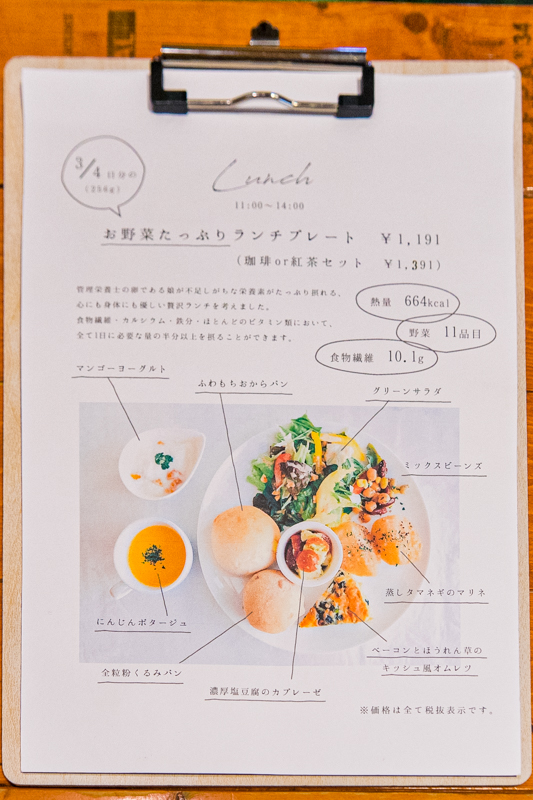 3/4日分の
(256g)
Lunch
11:00～14:00
お野菜たっぷりランチプレート ￥1,191
(珈琲or紅茶セット ￥1,391)
管理栄養士の卵である娘が不足しがちな栄養素がたっぷり摂れる、
心にも身体にも優しい贅沢ランチを考えました。
食物繊維・カルシウム・鉄分・ほとんどのビタミン類において、
全て1日に必要な量の半分以上を摂ることができます。
熱量 664kcal
野菜 11品目
食物繊維 10.1g
マンゴーヨーグルト
ふわもちおからパン
グリーンサラダ
ミックスビーンズ
蒸しタマネギのマリネ
にんじんポタージュ
ベーコンとほうれん草の
キッシュ風オムレツ
全粒粉くるみパン
濃厚塩豆腐のカプレーゼ
※価格は全て税抜表示です。